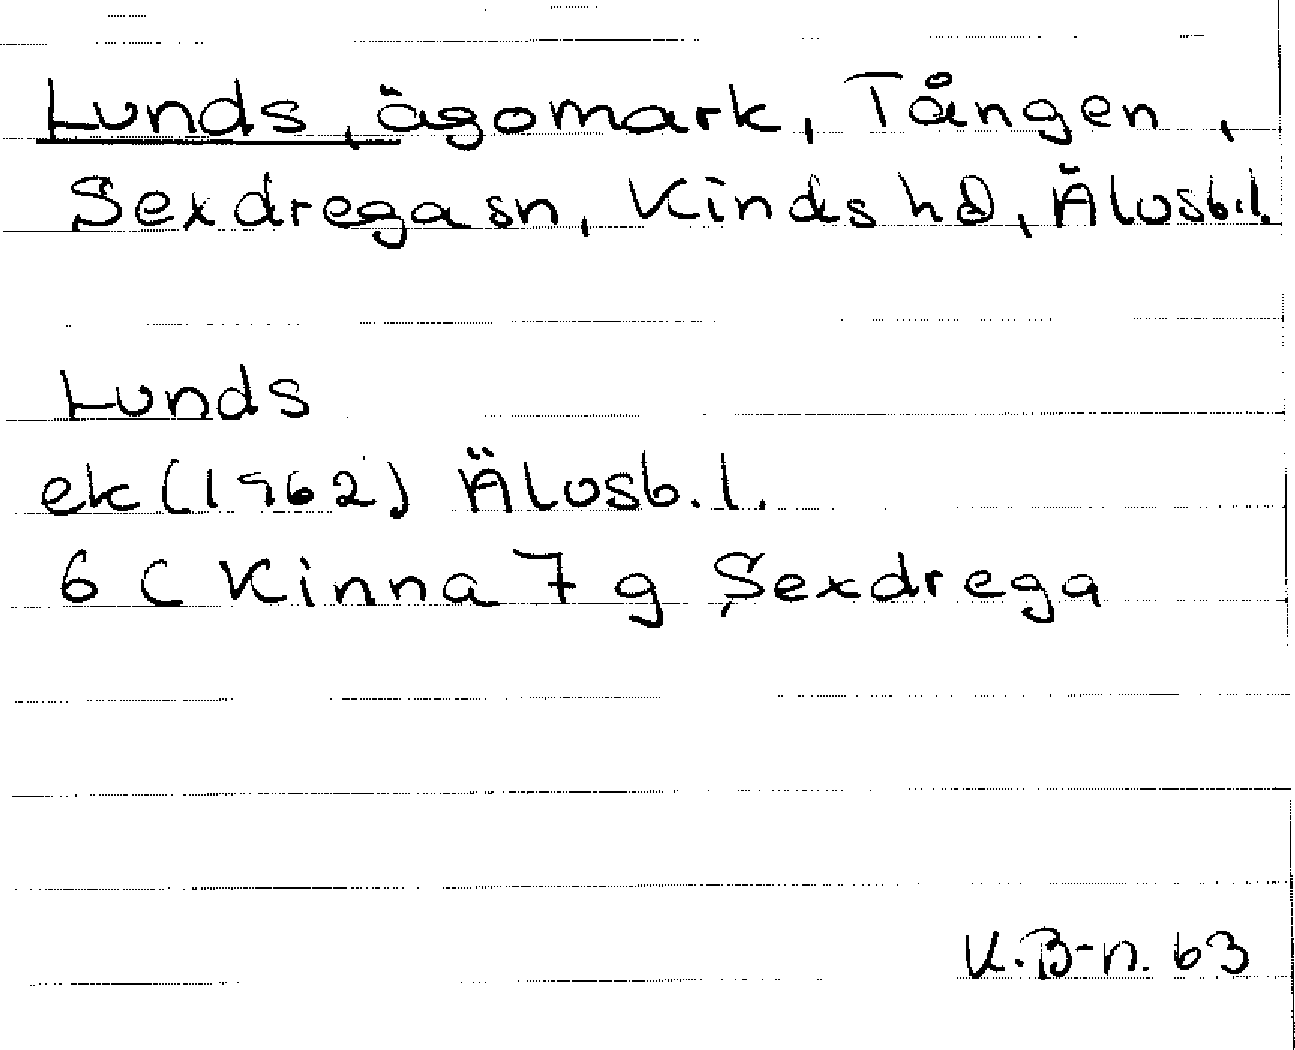 Lunds, ägomark, Tången,
Sexdrega sn, Kinds hd, Älvsb.l.
Lunds
ek (1962) Älvsb. l.
6 C Kinna 7 g Sexdrega
K.B-n. 63